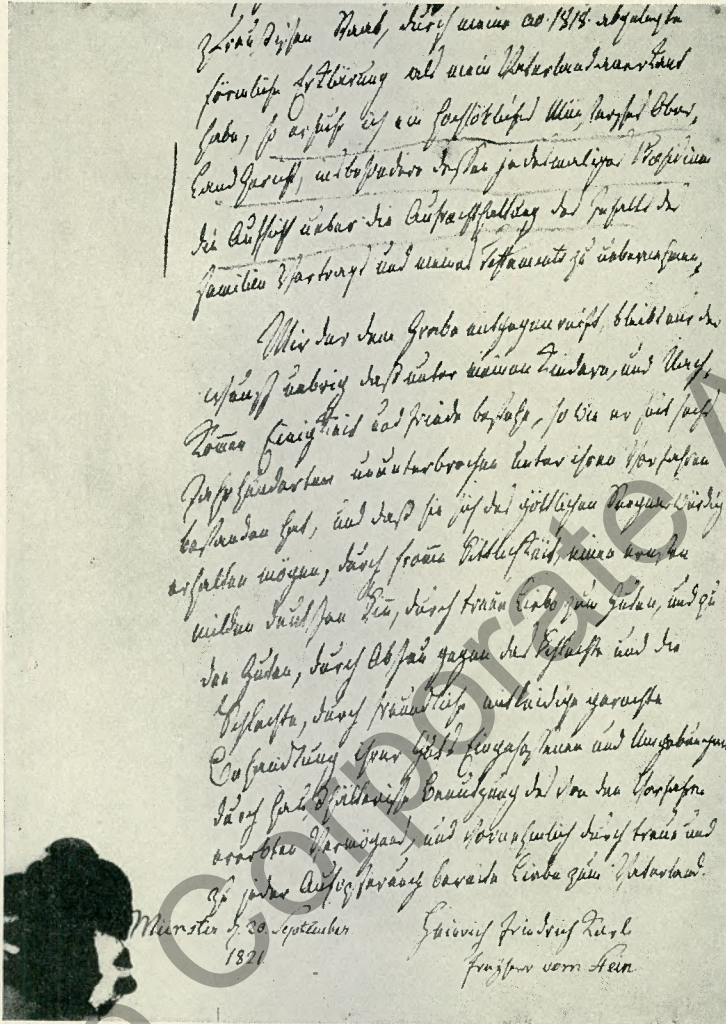 Preußischen Staat, durch meine ao. 1818. abgelegte
förmliche Erklärung als mein Vaterland anerkant
habe, so ersuche ich ein Hochlöbliches Münstersches Ober,
Land Gericht, insbesondere dessen jedesmaliges Praesidium
die Aufsicht ueber die Aufrechthaltung des Inhalts des
Familien Vertrags und meines Testaments zu uebernehmen,
Mir der dem Grabe entgegen reift, bleibt nur der
Wunsch uebrig daß unter meinen Kindern, und Nach,
kommen Einigkeit und Friede bestehe, so wie er seit sechs
Jahrhunderten ununterbrochen unter ihren Vorfahren
bestanden hat, und daß sie sich des göttlichen Seegens würdig
erhalten mögen, durch fromme Sittlichkeit, einen ernsten
milden deutschen Sinn, durch treue Liebe zum Guten, und zu
den Guten, durch Abscheu gegen das Schlechte und die
Schlechte, durch freundliche mitleidige gerechte
Behandlung ihrer Guts Eingesessenen und Umgebungen
durch haushälterische Benutzung des von den Vorfahren
ererbten Vermögens, und vornehmlich durch treue und
zu jeder Aufopferung bereite Liebe zum Vaterland.
Münster d. 20. September Heinrich Friedrich Karl
1821 Freyherr vom Stein
Corporate